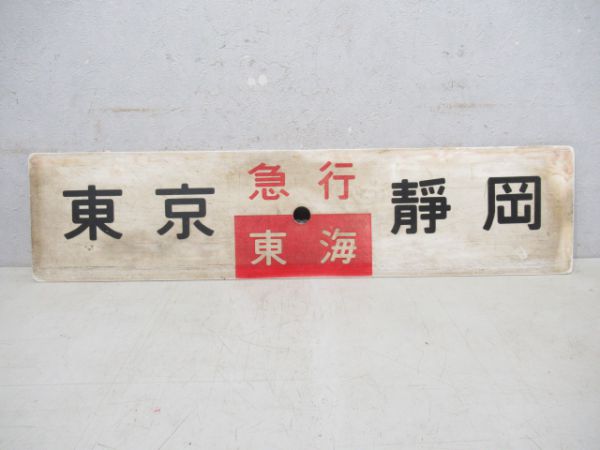 東京
急行
東海
靜岡